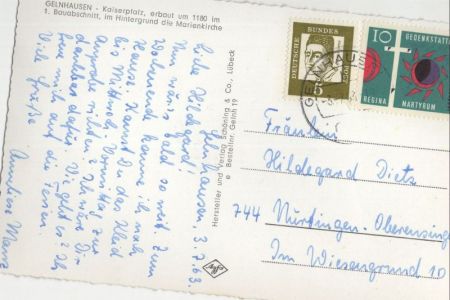 GELNHAUSEN - Kaiserpfalz, erbaut um 1180 im
1. Bauabschnitt, im Hintergrund die Marienkirche
Gelnhausen, 3.7.63
Liebe Hildegard!
Nun wär's bald so weit zum
nach
Hause. Kannst Du das Kleid
bis Mittwoch, Vormittag zur
Ich wäre Dir
dankbar dafür. geht es? Ich
freu mich auf die Ferien.
Viele Grüße
Herstellung und Verlag Schöning & Co., Lübeck
Bestellnr. Gelnh 19
Agfa
DEUTSCHE BUNDESPOST
5
10
GEDENKSTÄTTE
REGINA MARTYRUM
GELNHAUSEN
Fräulein
Hildegard Dietz
744 Nürtingen-Oberensingen
Im Wiesengrund 10